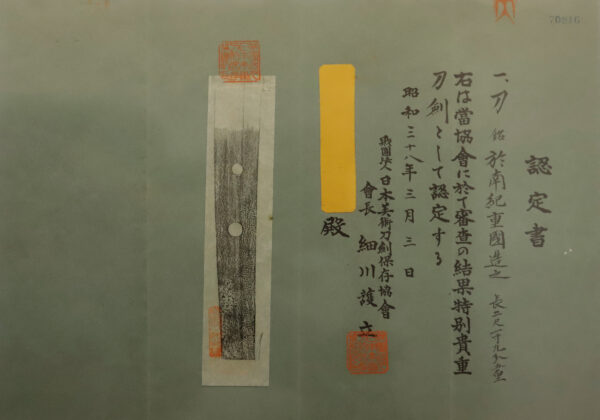 認定書
一、刀 銘 於南紀重國造之 長二尺一寸九分五厘
右は當協會に於て審査の結果特別貴重
刀劍として認定する
昭和三十八年三月三日
財團法人日本美術刀劍保存協會
會長 細川護立
殿
70816